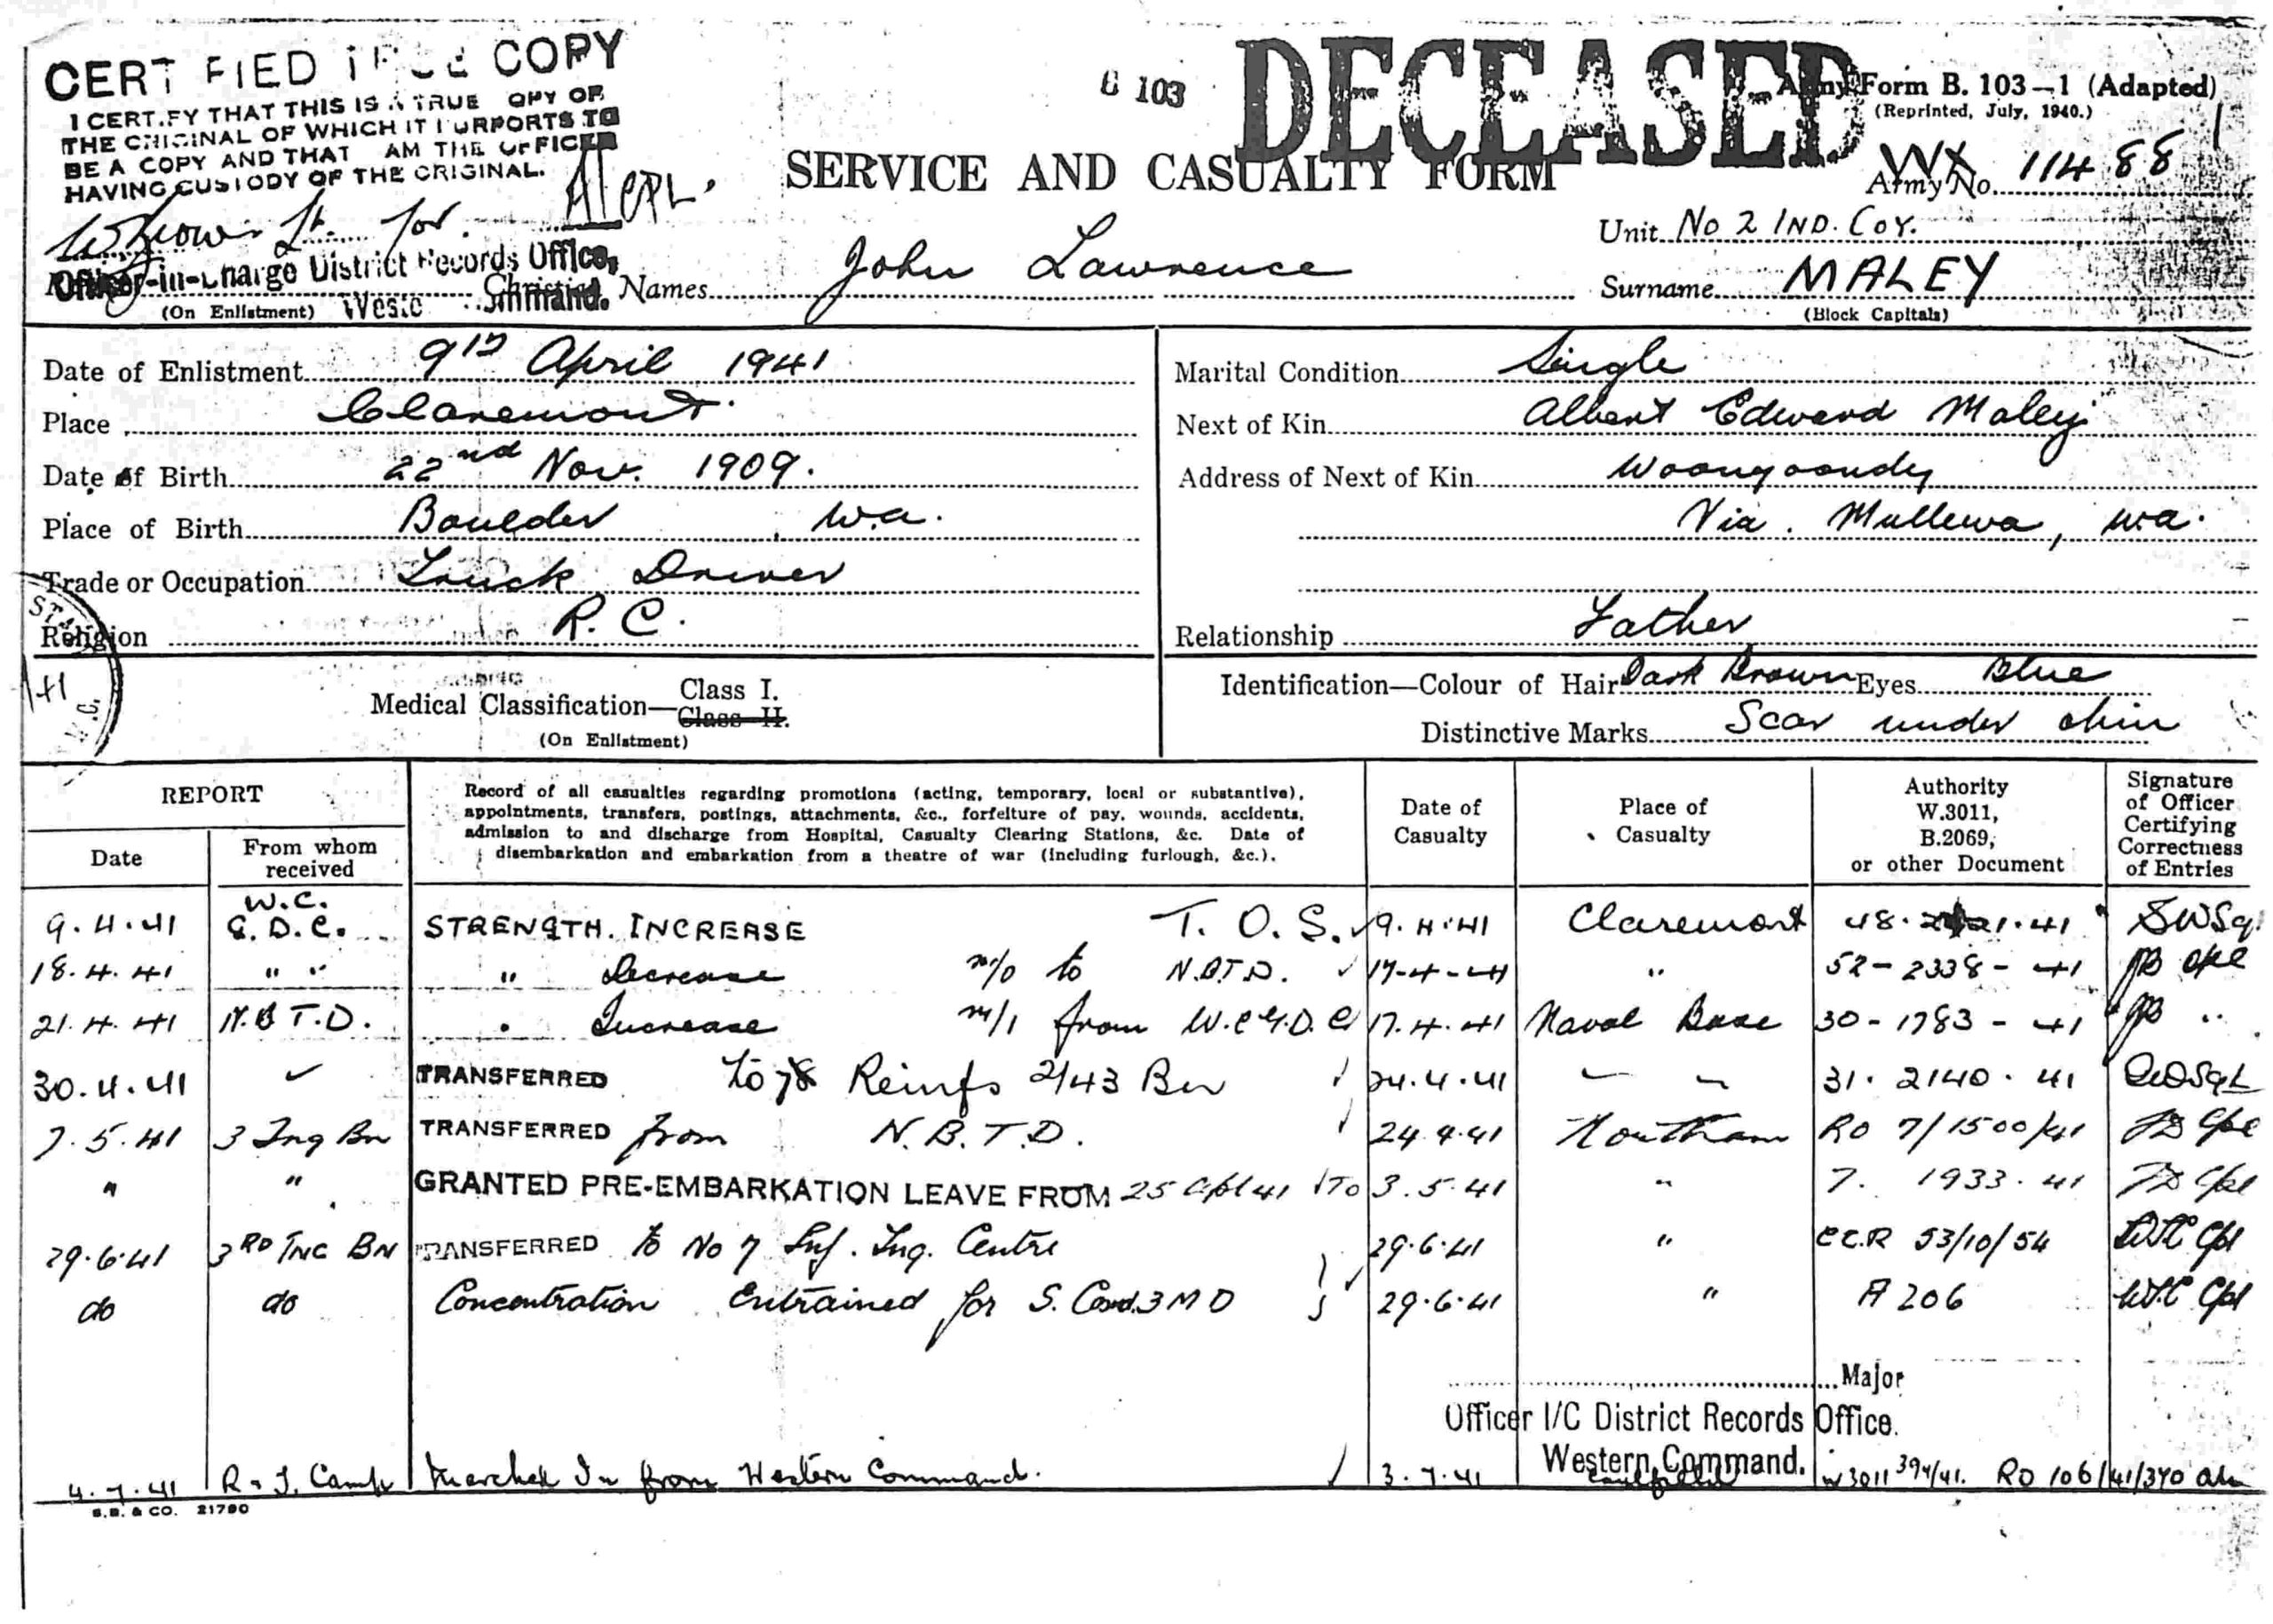 COPY
I CERT.FY THAT THIS IS A TRUE OPY OF
THE ORIGINAL OF WHICH IT PURPORTS TO
BE A COPY AND THAT AM THE OFFICER
HAVING CUSTODY OF THE ORIGINAL.
Lt. for
Officer-in-Charge District Records Office,
103
DECEASED
Army Form B. 103—1 (Adapted)
(Reprinted, July, 1940.)
SERVICE AND CASUALTY FORM
Army No. WX 11488
Unit No 2 IND. COY.
Names John Lawrence
Surname MALEY
(On Enlistment)
(Block Capitals)
Date of Enlistment 9th April 1941
Marital Condition Single
Place Claremont
Next of Kin Albert Edward Maley
Date of Birth 22nd Nov. 1909.
Address of Next of Kin Woongoondy
Place of Birth Boulder W.A.
Via. Mullewa, W.A.
Trade or Occupation Truck Driver
Religion R.C.
Relationship Father
Medical Classification— Class I.
Class II.
(On Enlistment)
Identification—Colour of Hair Dark Brown Eyes Blue
Distinctive Marks Scar under chin
REPORT
Date
From whom received
Record of all casualties regarding promotions (acting, temporary, local or substantive),
appointments, transfers, postings, attachments, &c., forfeiture of pay, wounds, accidents,
admission to and discharge from Hospital, Casualty Clearing Stations, &c. Date of
disembarkation and embarkation from a theatre of war (including furlough, &c.).
Date of Casualty
Place of Casualty
Authority W.3011, B.2069, or other Document
Signature of Officer Certifying Correctness of Entries
9.4.41 W.C. G.D.C. STRENGTH. INCREASE T.O.S. 9.4.41 Claremont
18.4.41 " " " Decrease m/o to N.B.T.D. 17-4-41 " 52-2338-41
21.4.41 N.B.T.D. " Increase m/i from W.C.G.D.C. 17.4.41 Naval Base 30-1783-41
30.4.41 TRANSFERRED to Reinfs 2/43 Bn 24.4.41 31.2140.41
7.5.41 3 Tng Bn TRANSFERRED from N.B.T.D. 24.4.41 Northam RO 7/1500/41
" " GRANTED PRE-EMBARKATION LEAVE FROM 25 Apl 41 TO 3.5.41 " 7. 1933.41
29.6.41 3RD TNG BN TRANSFERRED to No 7 Inf. Tng. Centre 29.6.41 " CCR 53/10/54
do do Concentration Entrained for S. Comd. 3 MD 29.6.41 " A 206
Major
Officer I/C District Records Office.
Western Command.
4.7.41 Camp Marched In from Western Command. 3.7.41 Caulfield W3011 394/41. RO 106/41/370
S.B. & CO. 21790